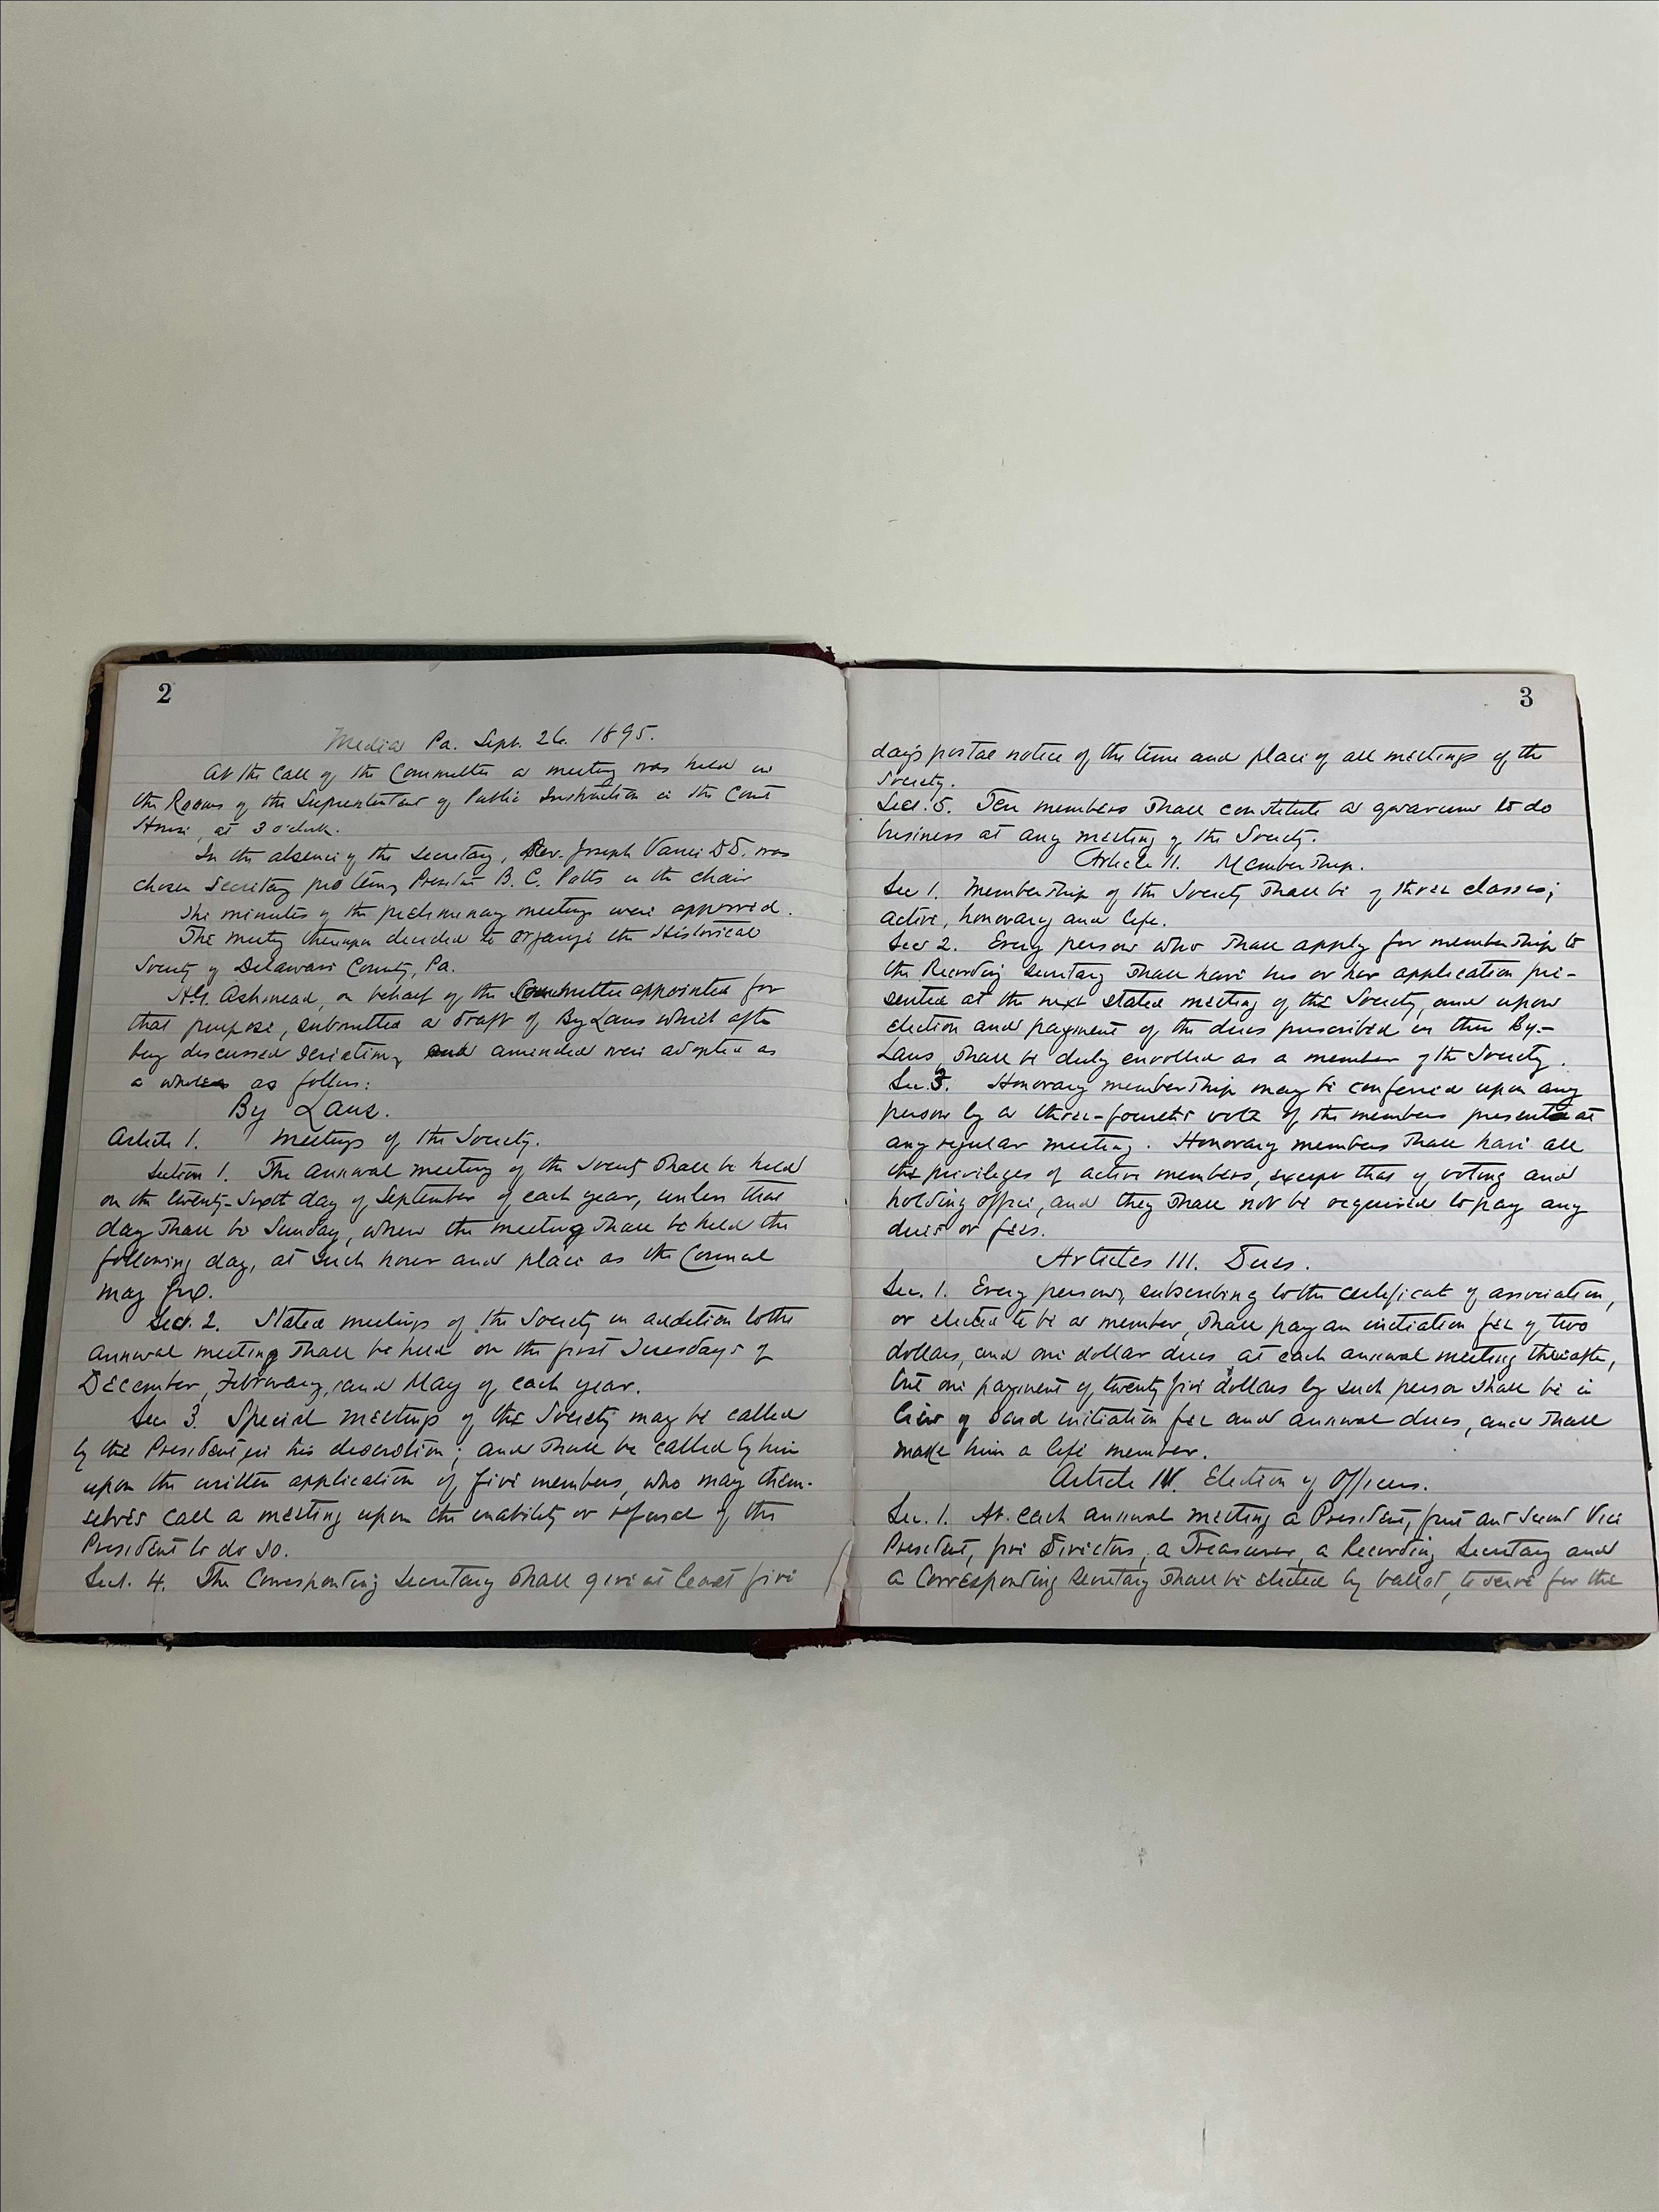 2
Media Pa. Sept. 26. 1895.
At the call of the Committee a meeting was held in
the Rooms of the Superintendent of Public Instruction in the Court
House, at 3 o'clock.
In the absence of the Secretary, Rev. Joseph Vance D.D. was
chosen Secretary pro tem, President B. C. Potts in the chair
The minutes of the preliminary meetings were approved.
The meeting thereupon decided to organize the Historical
Society of Delaware County, Pa.
H.G. Ashmead, on behalf of the Committee appointed for
that purpose, submitted a draft of By Laws which after
being discussed seriatim, and amended were adopted as
a whole as follows:
By Laws.
Article 1. Meetings of the Society.
Section 1. The annual meeting of the Society shall be held
on the twenty-sixth day of September of each year, unless that
day shall be Sunday, when the meeting shall be held the
following day, at such hour and place as the Council
may fix.
Sect. 2. Stated meetings of the Society in addition to the
annual meeting shall be held on the first Tuesdays of
December, February, and May of each year.
Sec 3. Special meetings of the Society may be called
by the President in his discretion; and shall be called by him
upon the written application of five members, who may them-
selves call a meeting upon the inability or refusal of the
President to do so.
Sect. 4. The Corresponding Secretary shall give at least five
3
days postal notice of the time and place of all meetings of the
Society.
Sect. 5. Ten members shall constitute a quorum to do
business at any meeting of the Society.
Article II. Membership.
Sec 1. Membership of the Society shall be of three classes;
active, honorary and life.
Sec 2. Every person who shall apply for membership to
the Recording Secretary shall have his or her application pre-
sented at the next stated meeting of the Society, and upon
election and payment of the dues prescribed in these By-
Laws, shall be duly enrolled as a member of the Society.
Sec. 3. Honorary membership may be conferred upon any
person by a three-fourths vote of the members present at
any regular meeting. Honorary members shall have all
the privileges of active members, except that of voting and
holding office, and they shall not be required to pay any
dues or fees.
Articles III. Dues.
Sec. 1. Every person, subscribing to the certificate of association,
or elected to be a member, shall pay an initiation fee of two
dollars, and one dollar dues at each annual meeting thereafter,
but one payment of twenty five dollars by such person shall be in
lieu of said initiation fee and annual dues, and shall
make him a life member.
Article IV. Election of Officers.
Sec. 1. At each annual meeting a President, first and second Vice
President, five Directors, a Treasurer, a Recording Secretary and
a Corresponding Secretary shall be elected by ballot, to serve for the